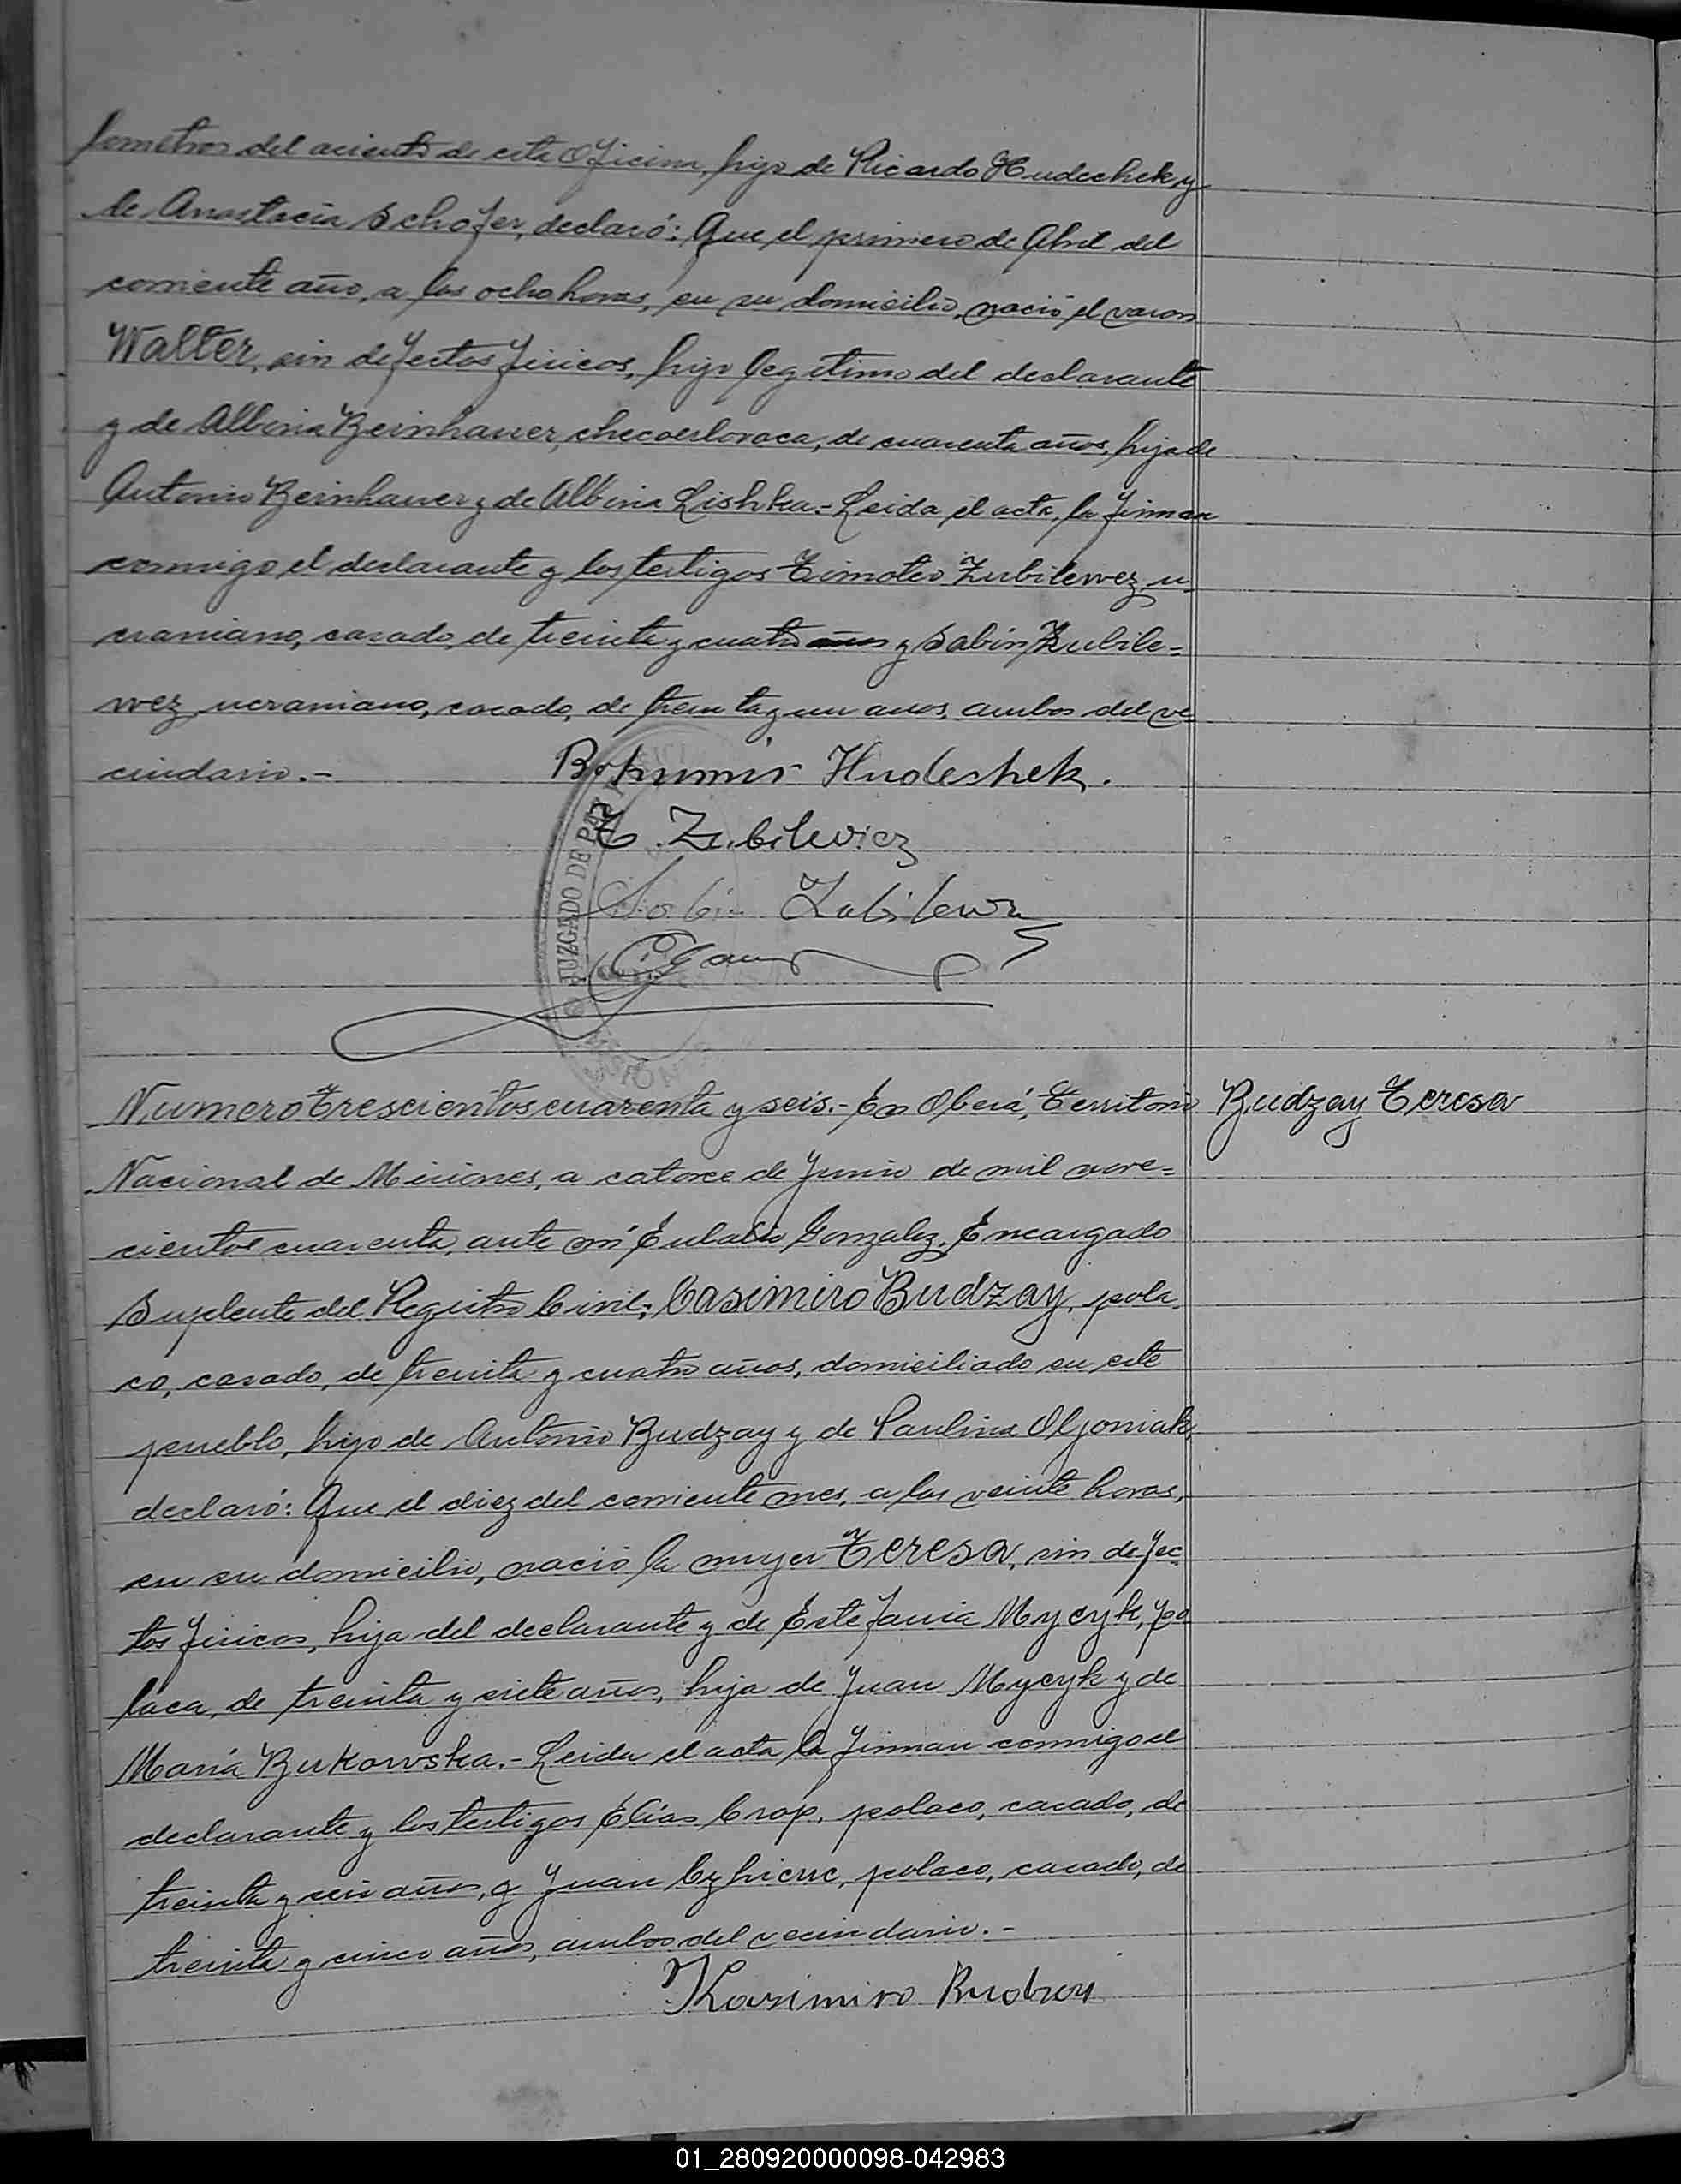 lometros del aciento de esta Oficina, hijo de Ricardo Hudechek y
de Anastacia Schofer, declaró: Que el primero de Abril del
corriente año, a las ocho horas, en su domicilio, nació el varon
Walter, sin defectos fisicos, hijo legitimo del declarante
y de Albina Beinhauer, checoeslovaca, de cuarenta años, hija de
Antonio Beinhauer y de Albina Lishka.- Leida el acta, la firman
conmigo el declarante y los testigos Timoteo Zubilewez, u-
craniano, casado, de treinta y cuatro años y Sabin Zubile=
wez, ucraniano, casado, de treinta y un anos, ambos del ve
cindario.-
Bohumir Hudeshek.
T. Zubilewicz
Sabin Zubilewiz
JUZGADO DE PAZ
Numero trescientos cuarenta y seis.- En Oberá, Territorio
Budzay Teresa
Nacional de Misiones, a catorce de Junio de mil nove=
cientos cuarenta, ante mí Eulalio Gonzalez, Encargado
Suplente del Registro Civil; Casimiro Budzay, pola-
co, casado, de treinta y cuatro años, domiciliado en este
pueblo, hijo de Antonio Budzay y de Paulina Olyoniak,
declaró: Que el diez del corriente mes, a las veinte horas,
en su domicilio, nació la mujer Teresa, sin defec-
tos fisicos, hija del declarante y de Estefania Mycyk, po
laca, de treinta y siete años, hija de Juan Mycyk y de
María Bukowska.- Leida el acta la firman conmigo el
declarante y los testigos Elías Crop, polaco, casado, de
treinta y seis años, y Juan polaco, casado, de
treinta y cinco años, ambos del vecindario.-
Kasimiro Budzay
01_280920000098-042983